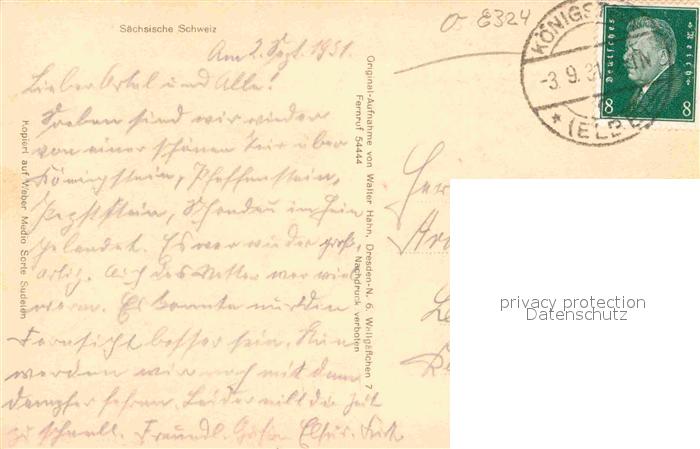 Sächsische Schweiz
o 8324
Am 2. Sept. 1931.
Lieber Onkel und Alle!
Soeben sind wir wieder
von einer schönen Tour über
Königstein, Pfaffenstein,
Papststein, Schandau im Heim
gelandet. Es war wieder groß-
artig. Auch das Wetter war wie
warm. Es konnte nur die
Fernsicht besser sein. Nun
werden wir noch mit dem
Dampfer fahren. Leider eilt die Zeit
zu schnell. Freundl. Grüße
Original-Aufnahme von Walter Hahn, Dresden-N. 6, Wallgäßchen 7
Fernruf 54444 Nachdruck verboten
Kopiert auf Weber Medio Sorte Sudelen
KÖNIGST
-3.9.31
* (ELBE)
Deutsches Reich
8 8
privacy protection
Datenschutz